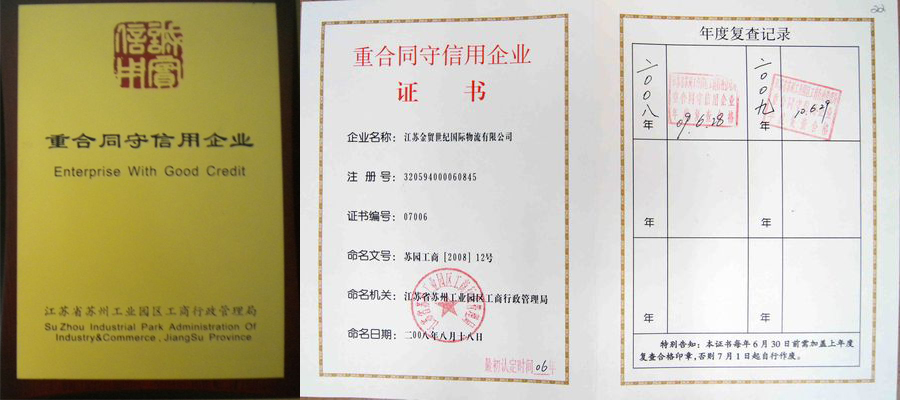 诚信
实用
重合同守信用企业
Enterprise With Good Credit
江苏省苏州工业园区工商行政管理局
Su Zhou Industrial Park Administration Of
Industry&Commerce , JiangSu Province
重合同守信用企业
证 书
企业名称：江苏金贸世纪国际物流有限公司
注 册 号：320594000060845
证书编号：07006
命名文号：苏园工商 [2008] 12号
命名机关：江苏省苏州工业园区工商行政管理局
命名日期：二00八年八月十八日
最初认定时间06年
年度复查记录
二00八年
09.6.28
二00九年
10.6.29
年
年
年
年
特别告知：本证书每年6月30日前需加盖上年度
复查合格印章，否则7月1日起自行作废。